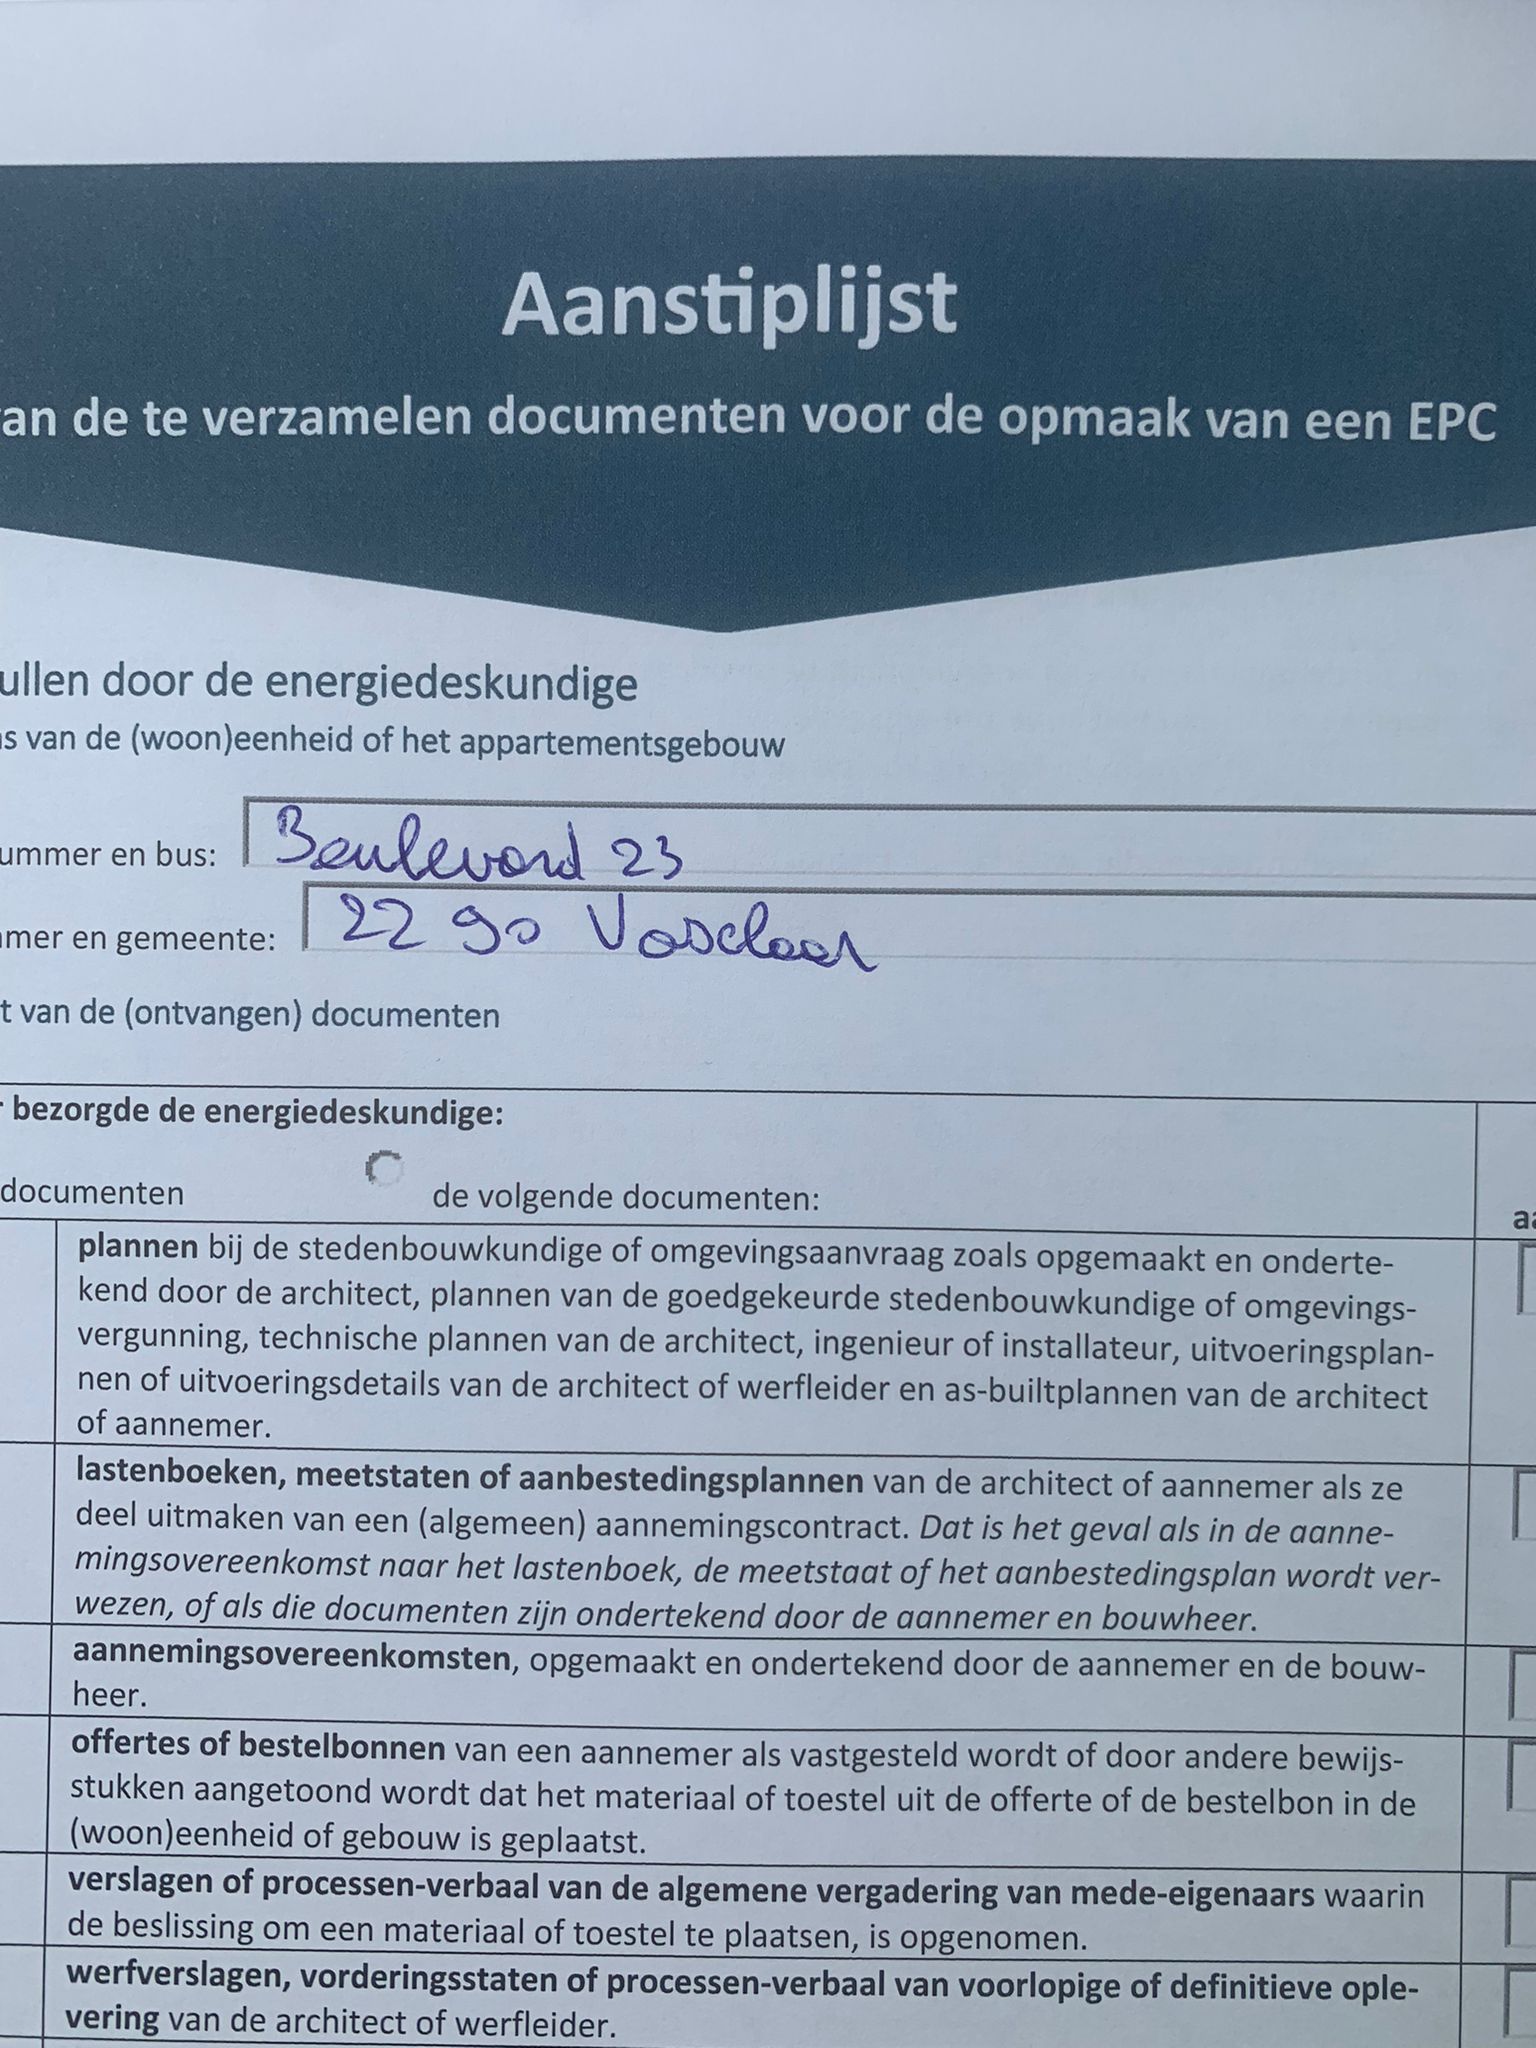 Aanstiplijst
an de te verzamelen documenten voor de opmaak van een EPC
ullen door de energiedeskundige
s van de (woon)eenheid of het appartementsgebouw
ummer en bus: Boulevard 23
mer en gemeente: 2290 Vosselaar
t van de (ontvangen) documenten
r bezorgde de energiedeskundige:
documenten de volgende documenten:
aa
plannen bij de stedenbouwkundige of omgevingsaanvraag zoals opgemaakt en onderte-
kend door de architect, plannen van de goedgekeurde stedenbouwkundige of omgevings-
vergunning, technische plannen van de architect, ingenieur of installateur, uitvoeringsplan-
nen of uitvoeringsdetails van de architect of werfleider en as-builtplannen van de architect
of aannemer.
lastenboeken, meetstaten of aanbestedingsplannen van de architect of aannemer als ze
deel uitmaken van een (algemeen) aannemingscontract. Dat is het geval als in de aanne-
mingsovereenkomst naar het lastenboek, de meetstaat of het aanbestedingsplan wordt ver-
wezen, of als die documenten zijn ondertekend door de aannemer en bouwheer.
aannemingsovereenkomsten, opgemaakt en ondertekend door de aannemer en de bouw-
heer.
offertes of bestelbonnen van een aannemer als vastgesteld wordt of door andere bewijs-
stukken aangetoond wordt dat het materiaal of toestel uit de offerte of de bestelbon in de
(woon)eenheid of gebouw is geplaatst.
verslagen of processen-verbaal van de algemene vergadering van mede-eigenaars waarin
de beslissing om een materiaal of toestel te plaatsen, is opgenomen.
werfverslagen, vorderingsstaten of processen-verbaal van voorlopige of definitieve ople-
vering van de architect of werfleider.